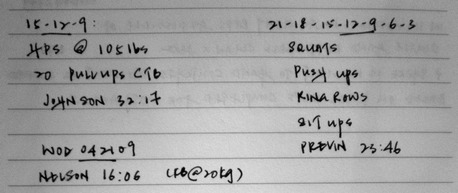 15-12-9:
HPS @ 105 lbs
20 PULL UPS CTB
JOHNSON 32:17
WOD 042109
NELSON 16:06 (KB@20kg)
21-18-15-12-9-6-3
SQUATS
PUSH UPS
RING ROWS
SIT UPS
PREVIN 23:46